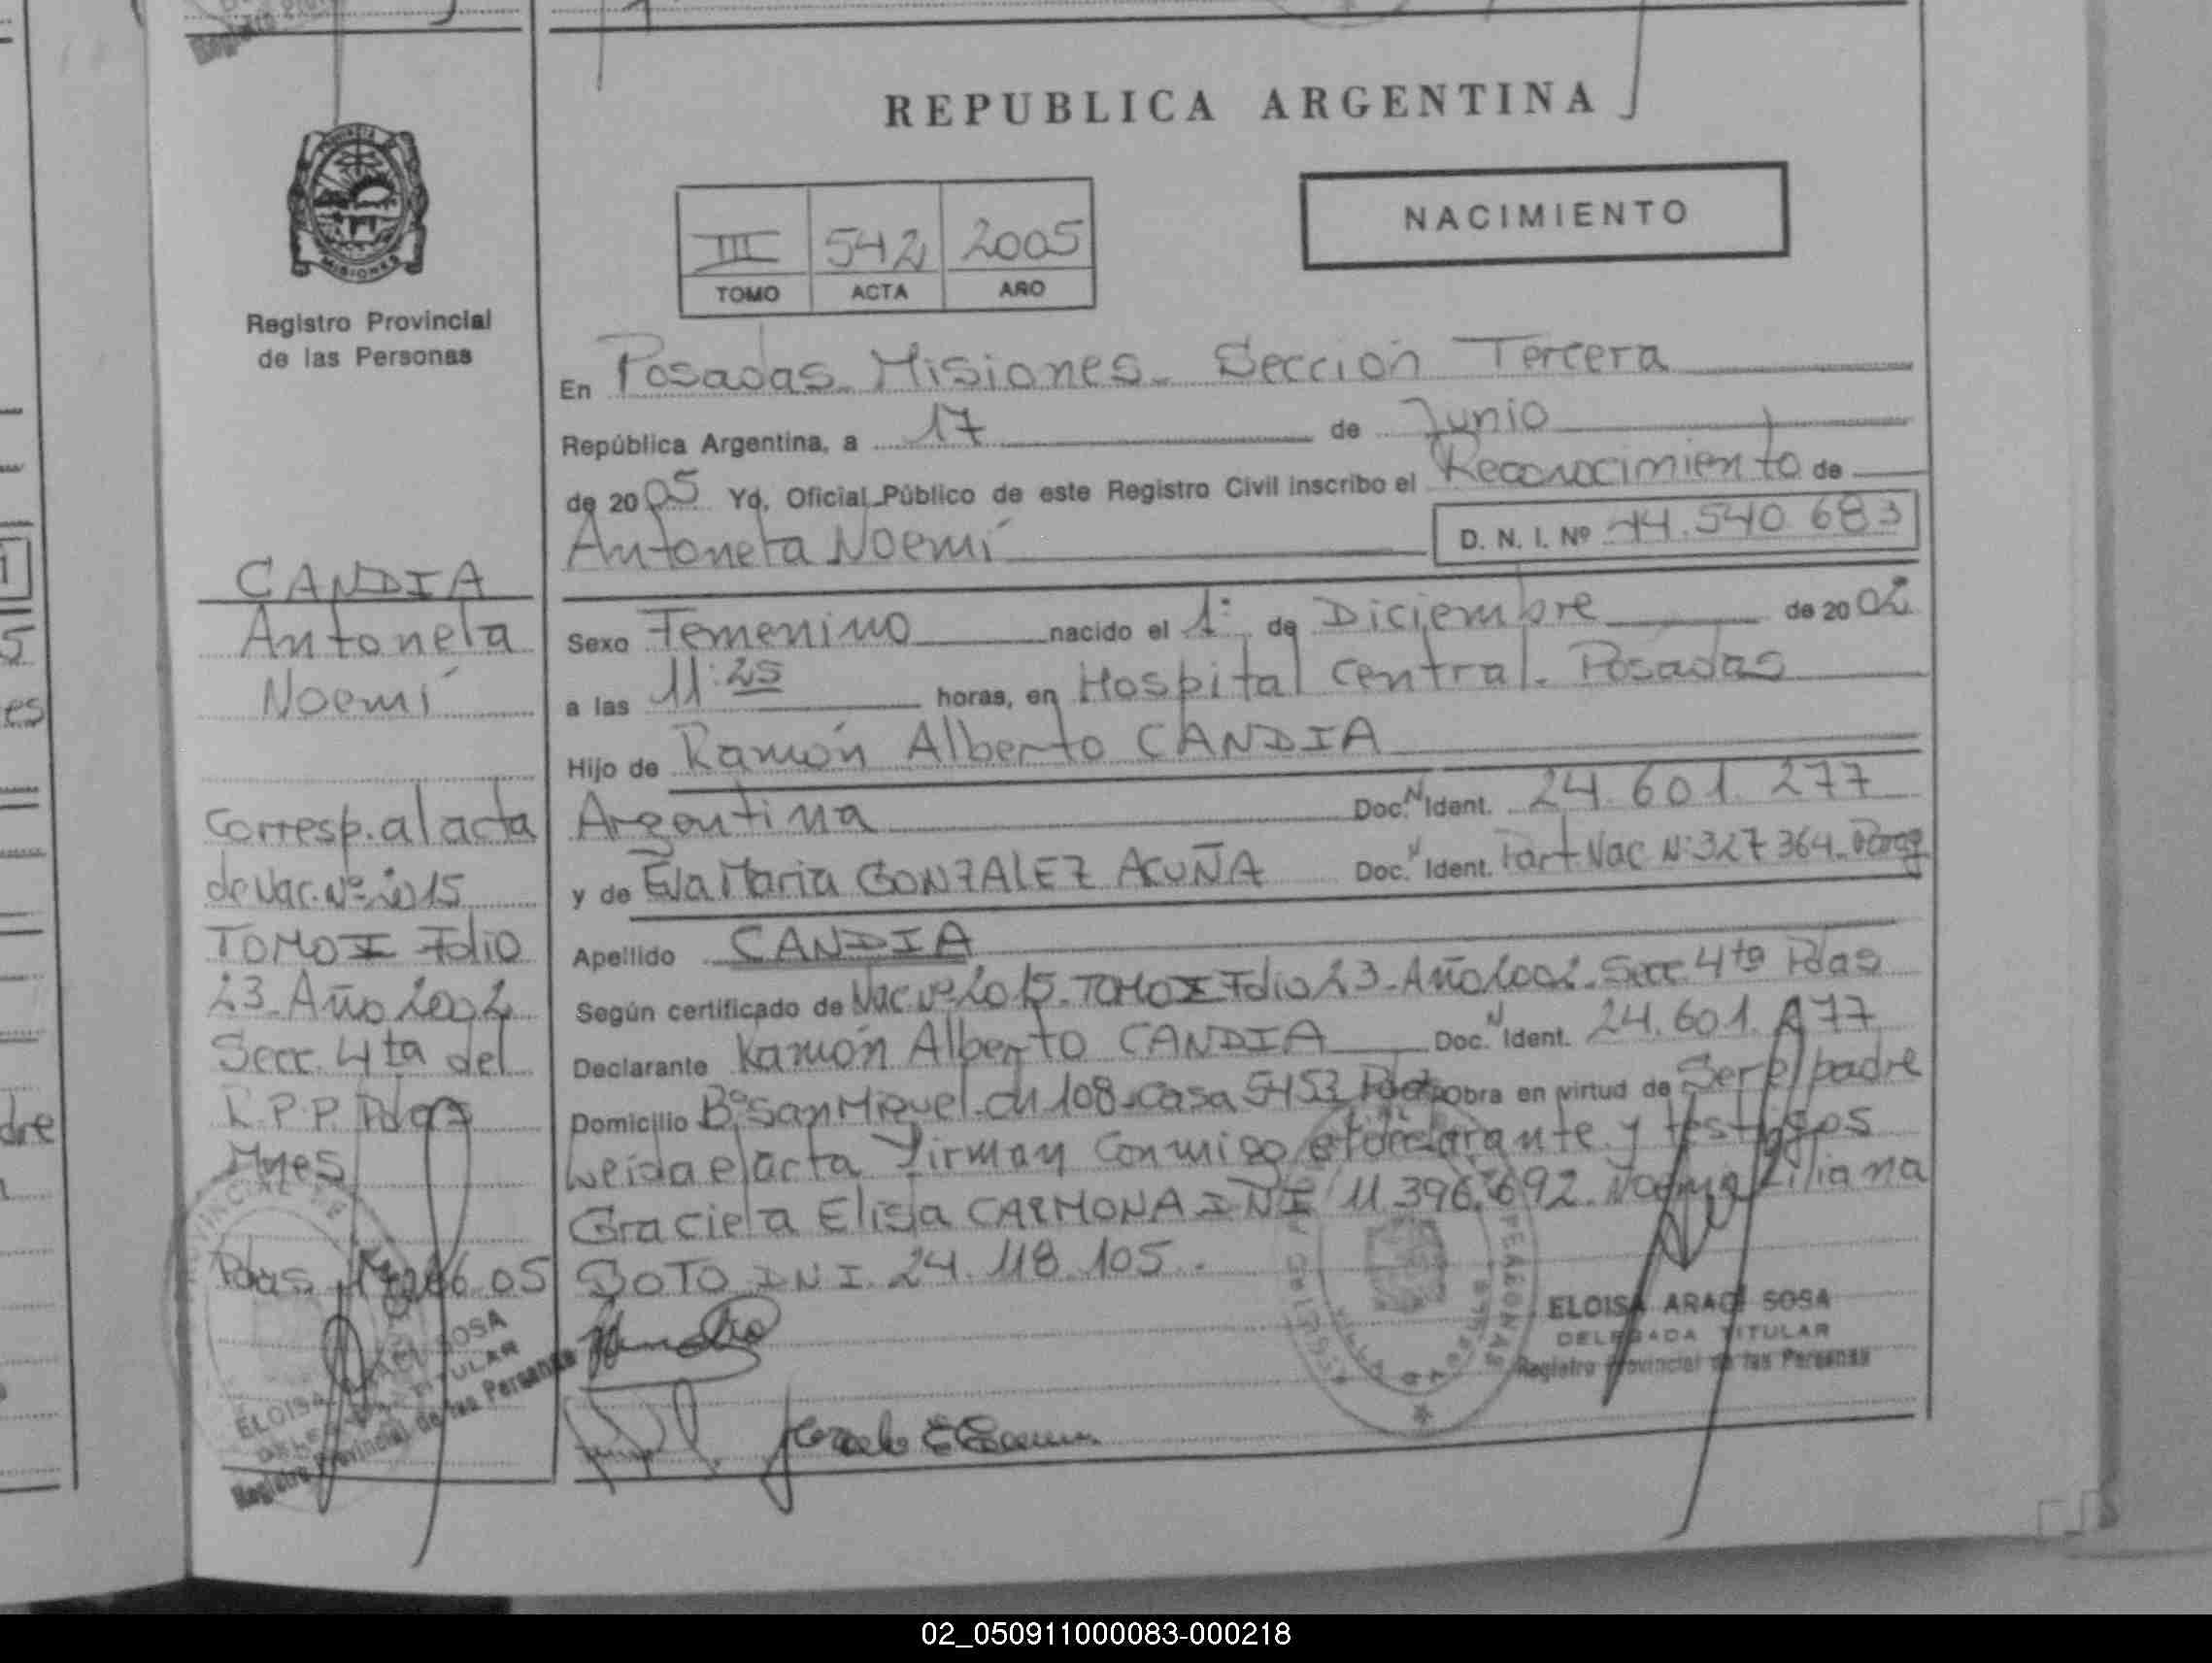 REPUBLICA ARGENTINA
NACIMIENTO
III 542 2005
TOMO ACTA AÑO
PROVINCIA
MISIONES
Registro Provincial
de las Personas
CANDIA
Antonela
Noemí
Corresp. al acta
de Nac. Nº 2015
TOMO X Folio
23 Año 2002
Secc. 4ta del
R.P.P. Pdas
Mnes
Pdas. 17.06.05
En Posadas Misiones Sección Tercera
República Argentina, a 17 de Junio
de 2005 Yo, Oficial Público de este Registro Civil inscribo el Reconocimiento de
Antonela Noemí D. N. I. Nº 44.540.683
Sexo Femenino nacido el 1º de Diciembre de 2002
a las 11:25 horas, en Hospital Central. Posadas
Hijo de Ramón Alberto CANDIA
Argentina Doc. N Ident. 24.601.277
y de Eva Maria GONZALEZ ACUÑA Doc. N Ident. Part Nac Nº 327 364 Parag
Apellido CANDIA
Según certificado de Nac Nº 2015. TOMO X Folio 23 - Año 2002. Secc 4ta Pdas
Declarante Ramón Alberto CANDIA Doc. N Ident. 24.601.277
Domicilio Bº San Miguel. Ch 108 - Casa 5453 obra en virtud de Ser el padre
Leida el acta Firman Conmigo el declarante y testigos
Graciela Elisa CARMONA DNI 11.396.692. Norma Liliana
SOTO DNI. 24.118.105.
ELOISA ARACI SOSA
DELEGADA TITULAR
Registro Provincial de las Personas
ELOISA ARACI SOSA
DELEGADA TITULAR
Registro Provincial de las Personas
02_050911000083-000218